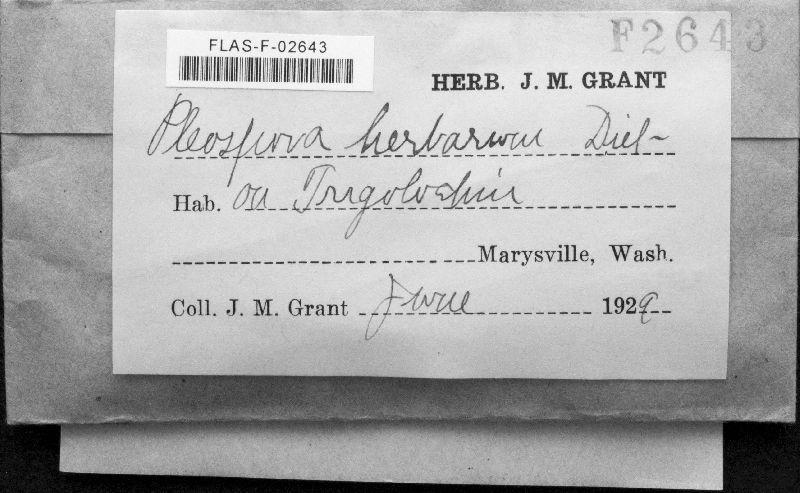 F2643
FLAS-F-02643
HERB. J. M. GRANT
Pleospora herbarum
Hab. on
Marysville, Wash.
Coll. J. M. Grant June 1929